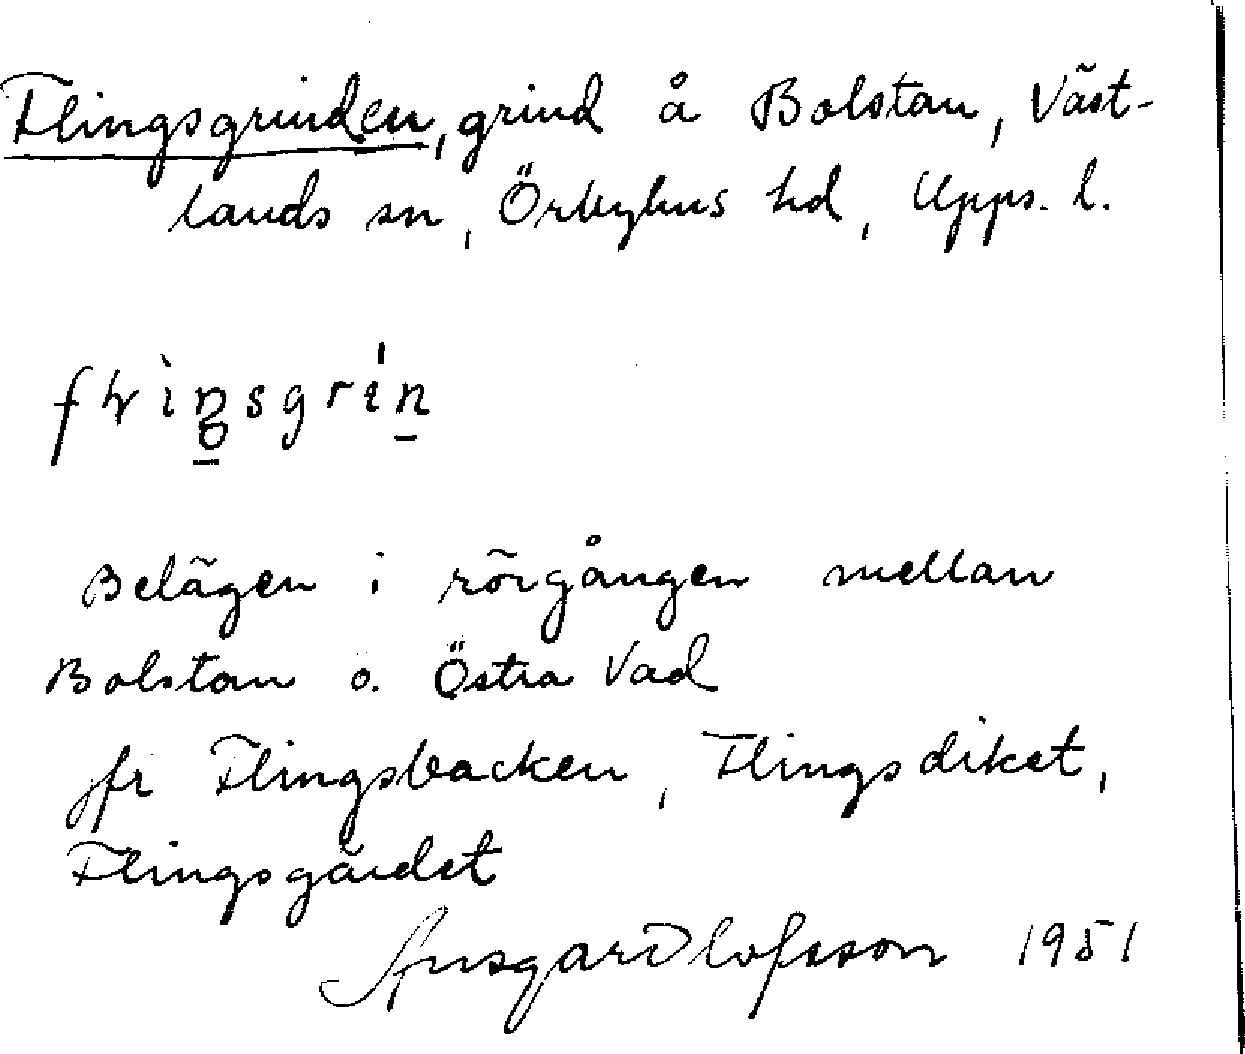 Flingsgrinden, grind å Bolstan, Väst-
lands sn, Örbyhus hd, Upps. l.
Belägen i rörgången mellan
Bolstan o. Östra Vad
jfr Flingsbacken, Flingsdiket,
Flingsgärdet
Ansgar Olofsson 1951